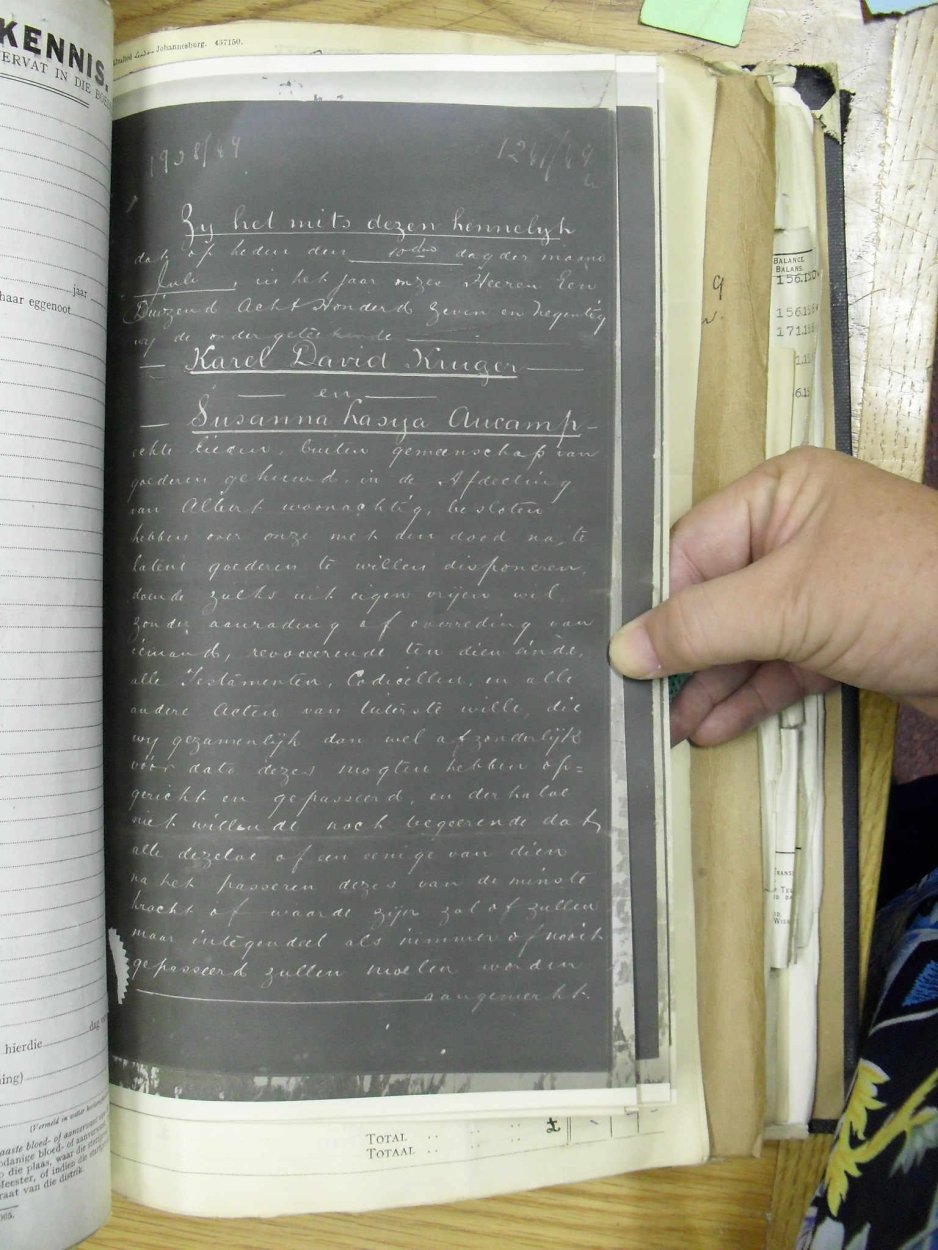 KENNIS.
ERVAT IN DIE BOE
jaar
haar eggenoot
dag v
hierdie
ning)
(Vermeld in watter
aaste bloed- of aanverwant
odanige bloed- of aanverwant
p die plaas, waar die
Meester, of indien die
raat van die distrik.
Johannesburg. 457150.
1928/49
Zy het mits dezen kennelyk
dat op heden den 10den dag der maand
Juli, in het jaar onzes Heeren Een
Duizend Acht Honderd Zeven en Negentig
wy de ondergeteekende
Karel David Kruger
en
Susanna Lasya Aucamp
echte lieden, buiten gemeenschap van
goederen gehuwd, in de Afdeeling
van Albert woonachtig, besloten
hebben over onze met den dood na te
laten goederen te willen disponeren,
doende zulks uit eigen vryen wil
zonder aanrading of overreding van
iemand, revoceerende ten dien einde,
alle Testamenten, Codicillen, en alle
andere Acten van uiterste wille, die
wy gezamenlyk dan wel afzonderlyk
vóór dato dezes mogten hebben op=
gericht en gepasseerd, en derhalve
niet willende noch begeerende dat
alle dezelve of een eenige van dien
na het passeren dezes van de minste
kracht of waarde zyn zal of zullen
maar integendeel als nimmer of nooit
gepasseerd zullen moeten worden
aangemerkt.
TOTAL
TOTAAL
£
BALANCE
BALANS
9